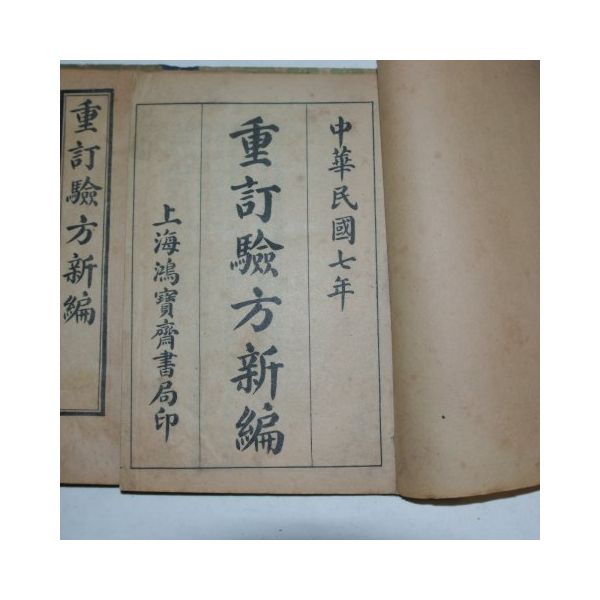 中華民國七年
重訂驗方新編
上海鴻寶齋書局印
重訂驗方新編